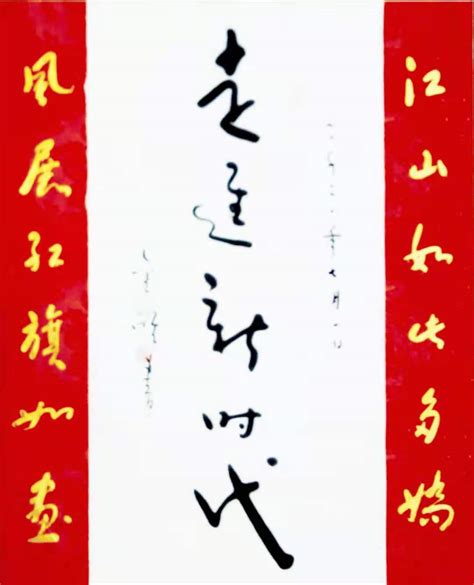 江山如此多娇
走進新时代
風展红旗如画